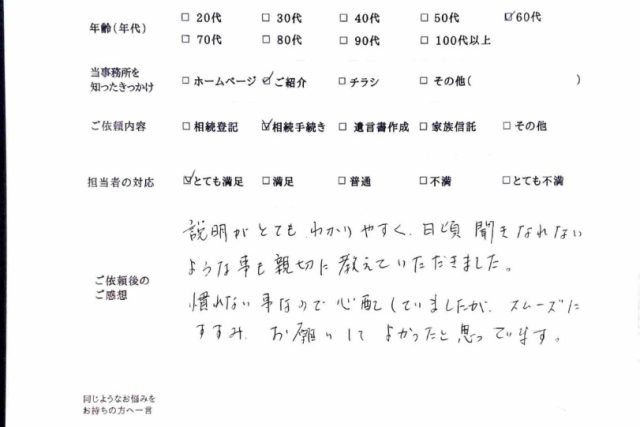 年齢(年代) □ 20代 □ 30代 □ 40代 □ 50代 ☑ 60代
□ 70代 □ 80代 □ 90代 □ 100代以上
当事務所を
知ったきっかけ □ ホームページ ☑ ご紹介 □ チラシ □ その他( )
ご依頼内容 □ 相続登記 ☑ 相続手続き □ 遺言書作成 □ 家族信託 □ その他
担当者の対応 ☑ とても満足 □ 満足 □ 普通 □ 不満 □ とても不満
ご依頼後の
ご感想
説明がとても、わかりやすく、日頃 聞きなれない
ような事も親切に教えていただきました。
慣れない事なので心配していましたが、スムーズに
すすみ、お願いして よかったと思っています。
同じようなお悩みを
お持ちの方へ一言